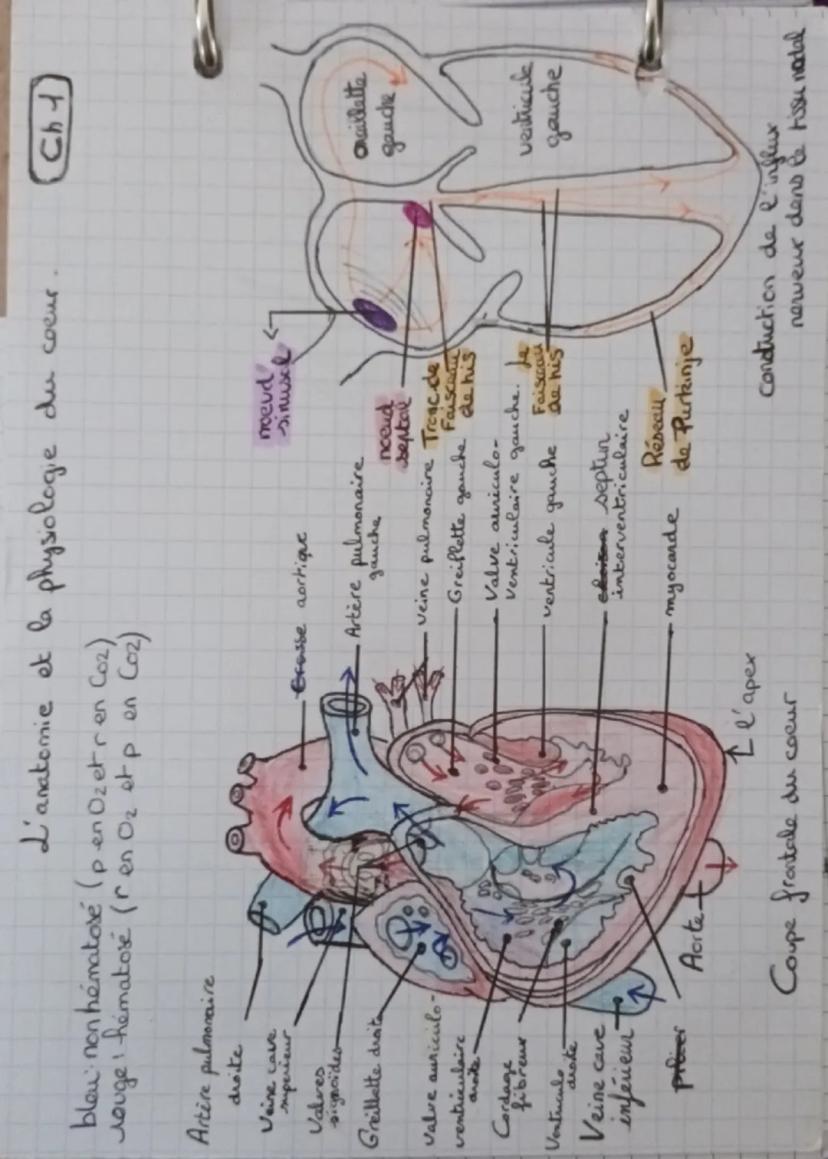 L'anatomie et la physiologie du coeur.
Ch 1
bleu: non hématosé (p en O2 et r en CO2)
rouge: hématosé (r en O2 et p en CO2)
Artère pulmonaire
droite
Veine cave
supérieur
Valves
sigmoïdes
Oreillette droite
valve auriculo-
ventriculaire
droite
Cordage
fibreux
Ventricule
droite
Veine cave
inférieur
pilier
Aorte
Crosse aortique
Artère pulmonaire
gauche
veine pulmonaire
Oreillette gauche
Valve auriculo-
ventriculaire gauche.
ventricule gauche
septun
interventriculaire
myocarde
l'apex
Coupe frontale du coeur
noeud
sinusal
noeud
septal
Tronc de
Faisceau
de his
Le
Faisceau
de his
Réseau
de Purkinje
oreillette
gauche
ventricule
gauche
conduction de l'influx
nerveux dans le tissu nodal